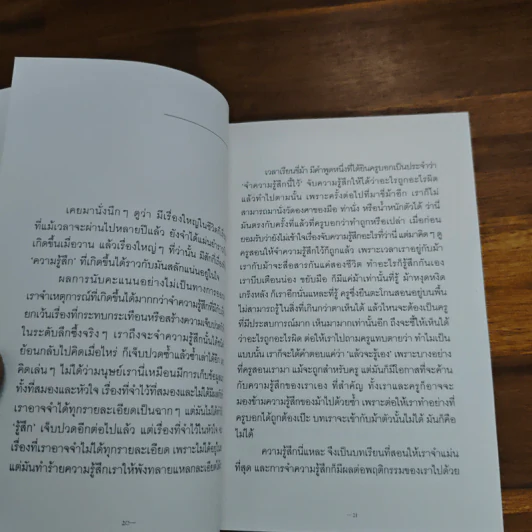 เคยมานั่งนึกๆ ดูว่า มีเรื่องใหญ่ในชีวิต
ที่แม้เวลาจะผ่านไปหลายปีแล้ว ยังจำได้แม่น
เกิดขึ้นเมื่อวาน แล้วเรื่องใหญ่ๆ ที่ว่านั้น มีสัก
‘ความรู้สึก’ ที่เกิดขึ้นได้ราวกับมันสลักแน่นอยู่ในใจ
ผลการนับคะแนนอย่างไม่เป็นทางการของ
เราจำเหตุการณ์ที่เกิดขึ้นได้มากกว่าจำความรู้สึกที่มี
ยกเว้นเรื่องที่กระทบกระเทือนหรือสร้างความเจ็บปวด
ในระดับลึกซึ้งจริงๆ เราถึงจะจำความรู้สึกนั้นได้
ย้อนกลับไปคิดเมื่อไหร่ ก็เจ็บปวดซ้ำแล้วซ้ำเล่าได้อีก
คิดเล่นๆ ไม่ได้ว่ามนุษย์เรานี่เหมือนมีการเก็บข้อมูล
ทั้งที่สมองและหัวใจ เรื่องที่จำไว้ที่สมองและไม่ได้มี
เราอาจจำได้ทุกรายละเอียดเป็นฉากๆ แต่มันไม่ได้ทำให้
‘รู้สึก’ เจ็บปวดอีกต่อไปแล้ว แต่เรื่องที่จำไว้ในหัวใจ
เรื่องที่เราอาจจำไม่ได้ทุกรายละเอียด เพราะไม่ได้อยู่ใน
แต่มันทำร้ายความรู้สึกเราให้พังทลายแหลกละเอียดได้
20
เวลาเรียนขี่ม้า มีคำพูดหนึ่งที่ได้ยินครูบอกเป็นประจำว่า
‘จำความรู้สึกนี้ไว้’ จับความรู้สึกให้ได้ว่าอะไรถูกอะไรผิด
แล้วทำไปตามนั้น เพราะครั้งต่อไปที่มาขี่ม้าอีก เราก็ไม่
สามารถมานั่งวัดองศาของมือ ท่านั่ง หรือน้ำหนักตัวได้ ว่านี่
มันตรงกับครั้งที่แล้วที่ครูบอกว่าทำถูกหรือเปล่า เมื่อก่อน
ยอมรับว่ายังไม่เข้าใจเรื่องจับความรู้สึกอะไรที่ว่านี่ แต่มาคิดๆ ดู
ครูสอนให้จำความรู้สึกไว้ก็ถูกแล้ว เพราะเวลาเราอยู่กับม้า
เรากับม้าจะสื่อสารกันแค่สองชีวิต ทำอะไรก็รู้สึกกันเอง
เราบีบเตือนน่อง ขยับมือ ก็มีแค่ม้าเท่านั้นที่รู้ ม้าหงุดหงิด
เกร็งหลัง ก็เราอีกนั่นแหละที่รู้ ครูซึ่งยืนตะโกนสอนอยู่บนพื้น
ไม่สามารถรู้ในสิ่งที่เกินกว่าตาเห็นได้ แล้วไหนจะต้องเป็นครู
ที่มีประสบการณ์มาก เห็นมามากเท่านั้นอีก ถึงจะชี้ให้เห็นได้
ว่าอะไรถูกอะไรผิด ต่อให้เราไปถามครูแทบตายว่า ทำไมเป็น
แบบนั้น เราก็จะได้คำตอบแค่ว่า ‘แล้วจะรู้เอง’ เพราะบางอย่าง
ที่ครูสอนเรามา แม้จะถูกสำหรับครู แต่มันก็มีโอกาสที่จะค้าน
กับความรู้สึกของเราเอง ที่สำคัญ ทั้งเราและครูก็อาจจะ
มองข้ามความรู้สึกของม้าไปด้วยซ้ำ เพราะต่อให้เราทำอย่างที่
ครูบอกได้ถูกต้องเป๊ะ บทเราจะเข้ากับม้าตัวนั้นไม่ได้ มันก็คือ
ไม่ได้
ความรู้สึกนี่แหละ จึงเป็นบทเรียนที่สอนให้เราจำแม่น
ที่สุด และการจำความรู้สึกก็มีผลต่อพฤติกรรมของเราไปด้วย
21